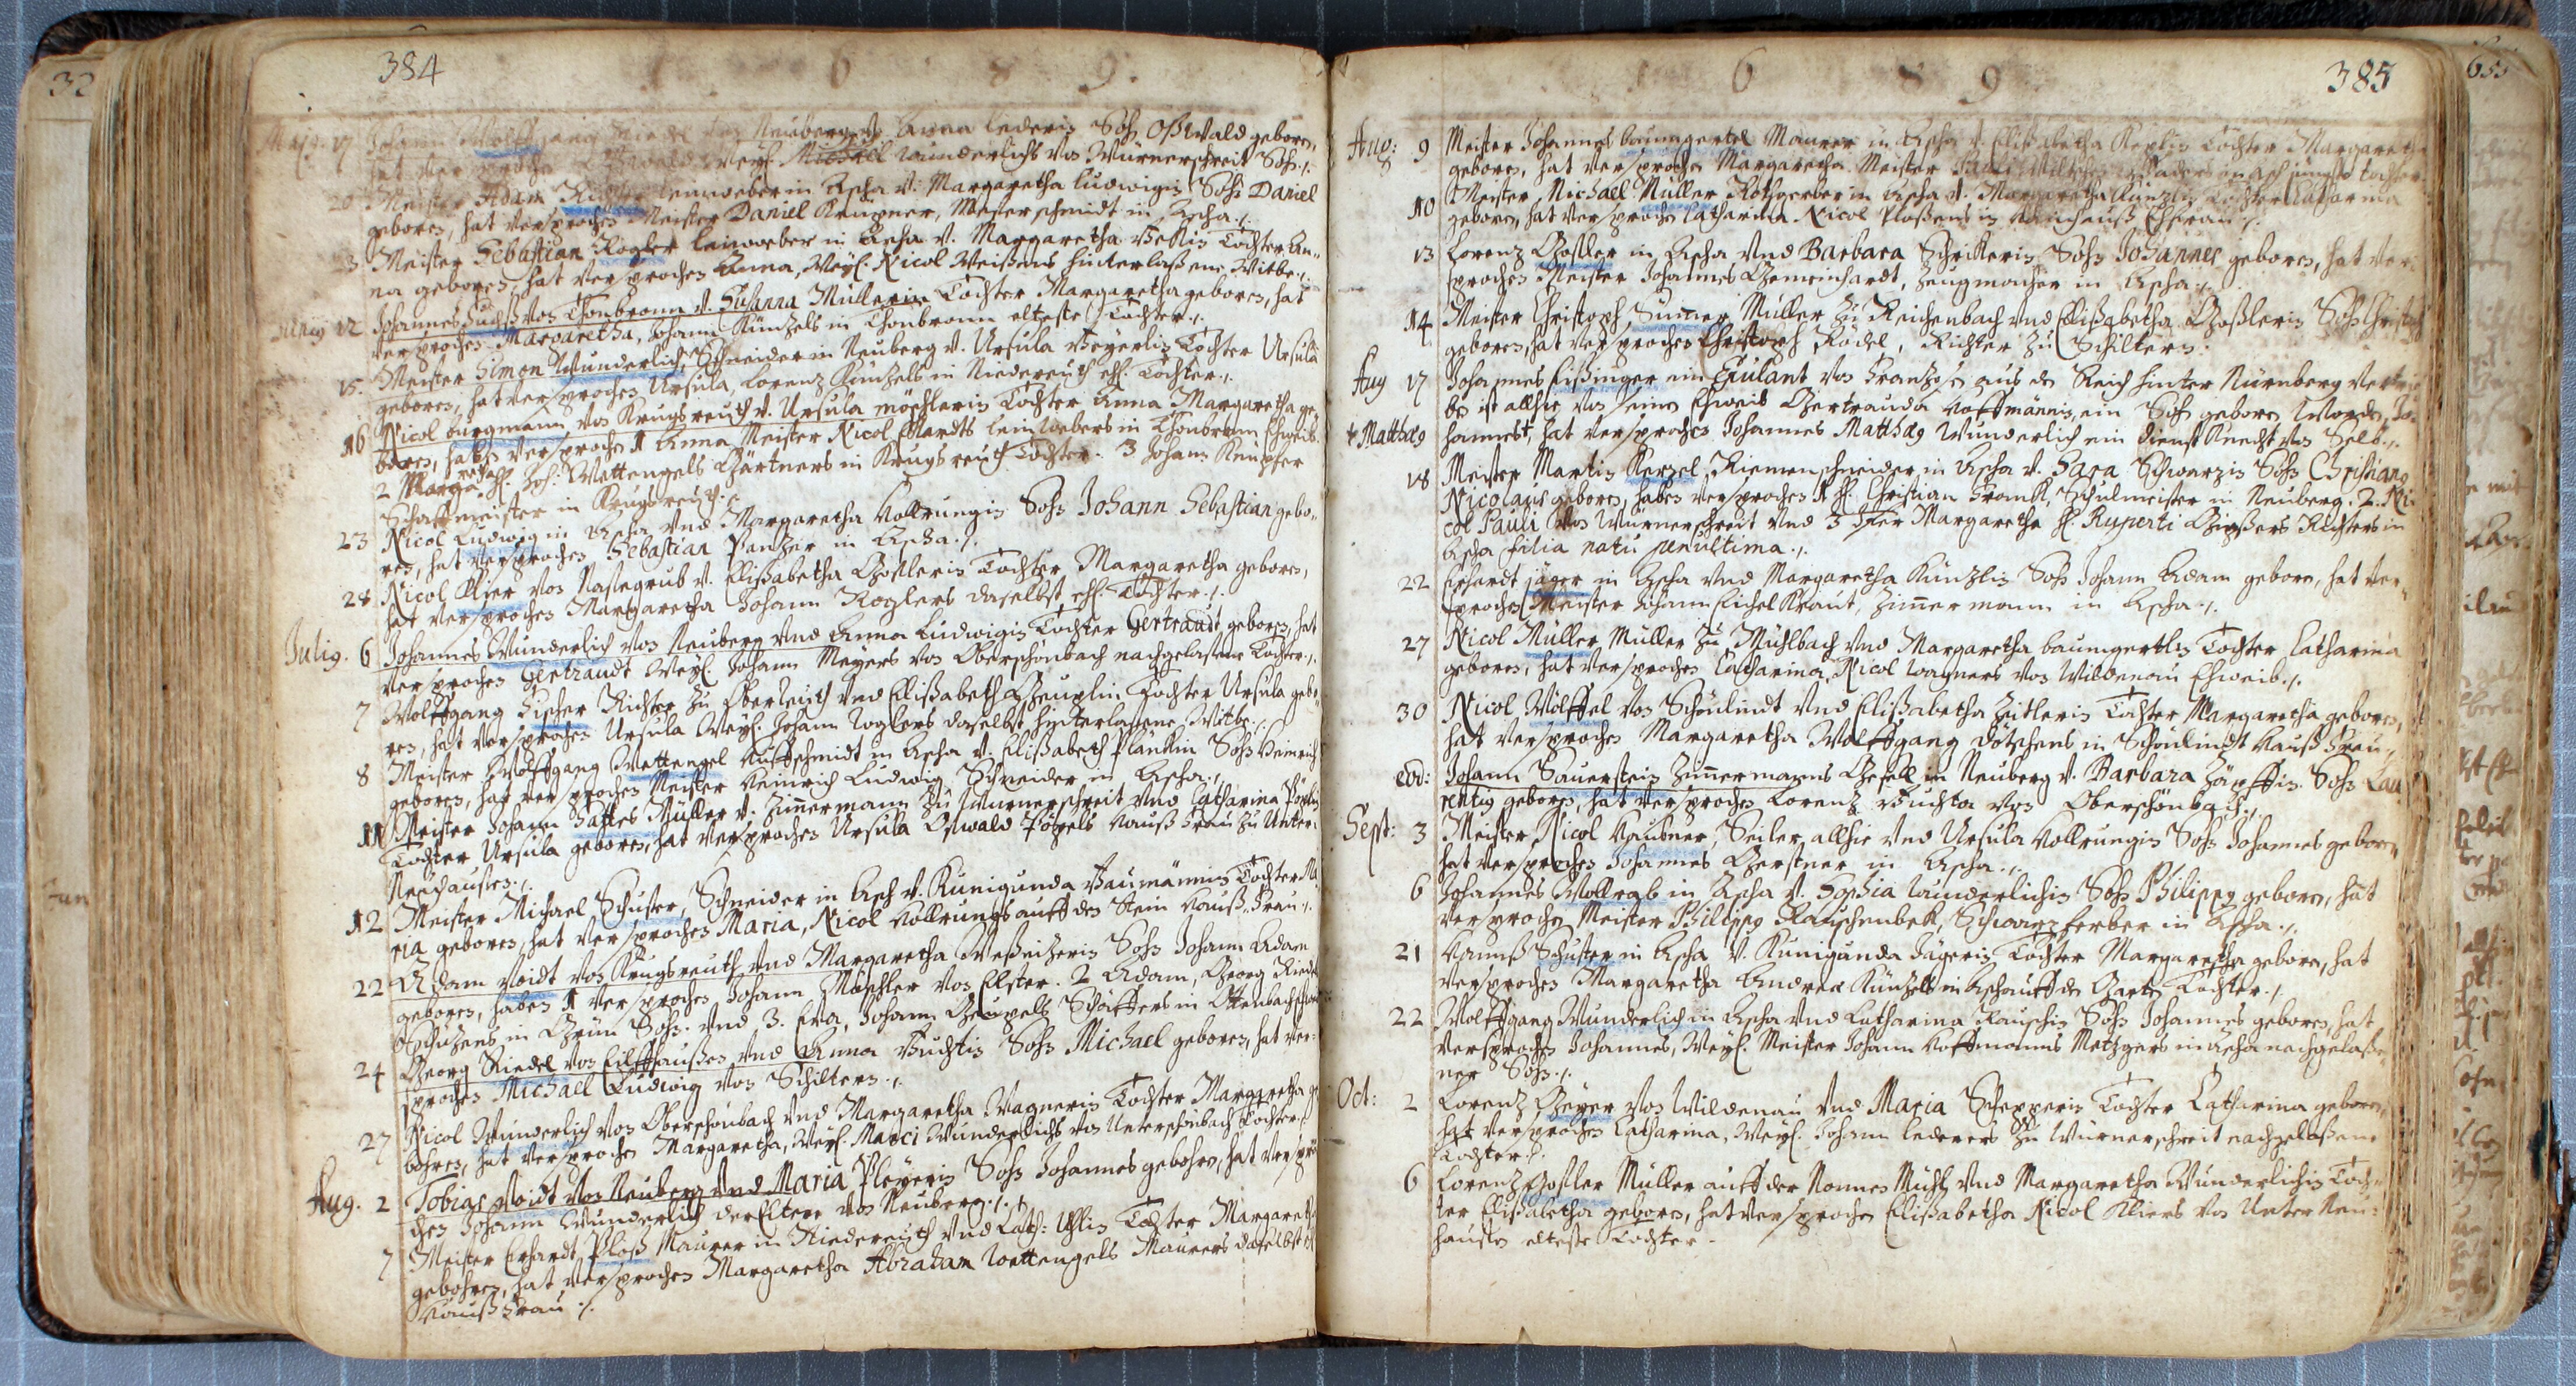 384
1 6 8 9.
Maj. 17 Johann Wolffgang Riedel von Neuberg v. Anna Lederin Sohn Oßwald geboren,
hat versprochen Weyl. Michael Wunderlichs von Würnerschreit Sohn./.
20 Meister Adam leinweber in Ascha v. Margaretha Ludwigin Sohn Daniel
geboren, hat versprochen Meister Daniel Künzner, Messerschmidt in Ascha./.
3 Meister Sebastian Rogler leinweber in Ascha v. Margaretha Tochter An-
na geboren, hat versprochen Anna, Weyl. Nicol Weißens hinterlaßene Witbe./.
Junij 12 Johannes Fuchß von Thonbronn v. Susanna Müllerin Tochter Margaretha geboren, hat
versprochen Margaretha, Johann Künzels in Thonbronn elteste Tochter./.
15. Meister Simon Wunderlich, Schneider in Neuberg v. Ursula Beyerlin Tochter Ursula
geboren, hat versprochen Ursula, Lorenz Künzels in Niedereuth ehl. Tochter./.
16 Nicol burgmann von Krugsreuth v. Ursula möschlerin Tochter Anna Margaretha ge-
boren, haben versprochen 1 Anna Meister Nicol leinwebers in Thonbronn Ehweib.
2 Marga Joh: Wettengels Gärtners in Krugsreuth Tochter. 3 Johann Künzer
Schaffmeister in Krugsreuth./.
23 Nicol Ludwig in Ascha und Margaretha Vollrungin Sohn Johann Sebastian gebo-
ren, hat versprochen Sebastian Panzer in Ascha./.
28 Nicol Klier von Nassegrub v. Elisabetha Goßlerin Tochter Margaretha geboren,
hat versprochen Margaretha Johann Roglers daselbst ehl. Tochter./.
Julij. 6 Johannes Wunderlich von Neuberg und Anna Ludwigin Tochter Gertraudt geboren, hat
versprochen Gertraudt Weyl. Johann Meyers von Oberschönbach nachgelassene Tochter./.
7 Wolffgang Fischer Richter zu Oberreuth und Elisabeth Geuplin Tochter Ursula gebo-
ren, hat versprochen Ursula Weyl. Johann Roglers daselbst hinterlaßene Witbe./.
8 Meister Wolffgang Wettengel Huffschmidt in Ascha v. Elisabeth Plänkin Sohn Heinrich
geboren, hat versprochen Meister Heinrich Ludwig Schneider in Ascha./.
11 Meister Johann Müller v. Zimmermann zu Wurnerschreit und Catharina
Tochter Ursula geboren, hat versprochen Ursula Oßwald Pözels Hauß Frau zu Unter-
Neuhausen./.
12 Meister Michael Schuster, Schneider in Asch v. Kunigunda Baumännin Tochter Ma-
ria geboren, hat versprochen Maria, Nicol Vollrungs auff den Stein Hauß Frau./.
22 Adam Voidt von Krugsreuth und Margaretha Sohn Johann Adam
geboren, haben 1 versprochen Johann Möschler von Elster. 2 Adam, Georg Riedels
Schüzens in Grün Sohn. und 3. Eva, Johann Geupels Schäffers in
24 Georg Riedel von Eilffhausen und Anna Buchtin Sohn Michael geboren, hat ver-
sprochen Michael Ludwig von Schiltern./.
27 Nicol Wunderlich von Oberschönbach und Margaretha Wagnerin Tochter Margaretha ge-
bohren, hat versprochen Margaretha, Weyl. Marci Wunderlichs von Unterschönbach Tochter./.
Aug. 2 Tobias Voidt von Neuberg und Maria Pleyerin Sohn Johannes gebohren, hat verspro-
chen Johann Wunderlich der Eltere von Neuberg./.
7 Meister Erhardt Ploß Maurer in Niedereuth und Cath: Uhlin Tochter Margareth
gebohren, hat versprochen Margaretha Abraham Wettengels Maurers daselbst
Hauß Frau./.
385
1 6 8 9
Aug: 9 Meister Johannes baumgertel Maurer in Ascha v. Elisabetha Tochter Margaretha
geboren, hat versprochen Margaretha Meister in Asch jüngste tochter.
10 Meister Michael Müller Rothgerber in Ascha v. Margaretha Künzlin Tochter Catharina
geboren, hat versprochen Catharina Nicol Ploßens in Neuhauß Ehfrau./.
13 Lorenz Goßler in Ascha und Barbara Schrikerin Sohn Johannes geboren, hat ver-
sprochen Meister Johannes Gemeinhardt, Zeugmacher in Ascha./.
14 Meister Christoph Sumer Müller zu Reichenbach und Elisabetha Goßlerin Sohn Christoph
geboren, hat versprochen Christoph Rödel, Richter zu Schiltern:
Aug 17 Johannes Eißinger ein Exulant von Franzosen aus dem Reich hinter Nürnberg vertrie-
ben ist allhie von seinem Ehweib Gertrauda Hoffmännin, ein Sohn geboren worden, Jo-
+ Matthæ9 hannes+, hat versprochen Johannes Matthæ9 Wunderlich ein dienst Knecht von Selb./.
18 Meister Martin Kerzel, Riemenschneider in Ascha v. Sara Schwarzin Sohn Christian9
Nicolaus geboren, haben versprochen 1 H. Christian Frank, Schulmeister in Neuberg. 2. Ni-
col Pauli von Würnerschreit und 3 Jfer Margaretha H. Ruperti Gipßers Richters in
Ascha filia natu penultima./.
22 Erhardt jäger in Ascha und Margaretha Künzlin Sohn Johann Adam geboren, hat ver-
sprochen Meister Johann Eichel Kraut, Zimmermann in Ascha./.
27 Nicol Müller Müller zu Mühlbach und Margaretha baumgertlin Tochter Catharina
geboren, hat versprochen Catharina, Nicol Wagners von Wildenau Ehweib./.
30 Nicol Wölffel von Schönlindt und Elisabetha Zeitlerin Tochter Margaretha geboren,
hat versprochen Margaretha Wolffgang dötschens in Schönlindt Hauß Frau./.
eod: Johann Sauerstein Zimmermanns Gesell in Neuberg v. Barbara Zäpffin Sohn Lau-
rentig geboren, hat versprochen Lorenz Buchta von Oberschönbach./.
Sept: 3 Meister Nicol Haubner, Seiler allhie und Ursula Vollrungin Sohn Johannes geboren,
hat versprochen Johannes Gerstner in Ascha./.
6 Johannes Vollrath in Ascha v. Sophia Wunderlichin Sohn Philipp9 geboren, hat
versprochen Meister Philipp9 Rauschenbek, Schwarzferber in Ascha./.
21 Hannß Schuster in Ascha v. Kunigunda Jägerin Tochter Margaretha geboren, hat
versprochen Margaretha Andreæ Künzels in Ascha auff den Garten Tochter./.
22 Wolffgang Wunderlich in Ascha und Catharina Rauschin Sohn Johannes geboren, hat
versprochen Johannes, Weyl. Meister Johann Hoffmanns Metzgers in Ascha nachgelaße-
ner Sohn./.
Oct: 2 Lorenz Geyer von Wildenau und Maria Schepperin Tochter Catharina geboren,
hat versprochen Catharina, Weyl. Johann Lederers zu Würnerschreit nachgelaßene
Tochter./.
6 Lorenz Goßler Müller auff der Nonnen Mühl und Margaretha Wunderlichin Toch-
ter Elisabetha geboren, hat versprochen Elisabetha Nicol Kliers von Unter Neu-
hausen elteste Tochter.